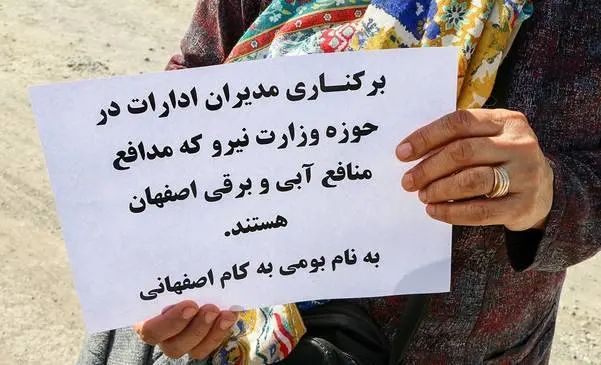 برکناری مدیران ادارات در
حوزه وزارت نیرو که مدافع
منافع آبی و برقی اصفهان
هستند.
به نام بومی به کام اصفهانی